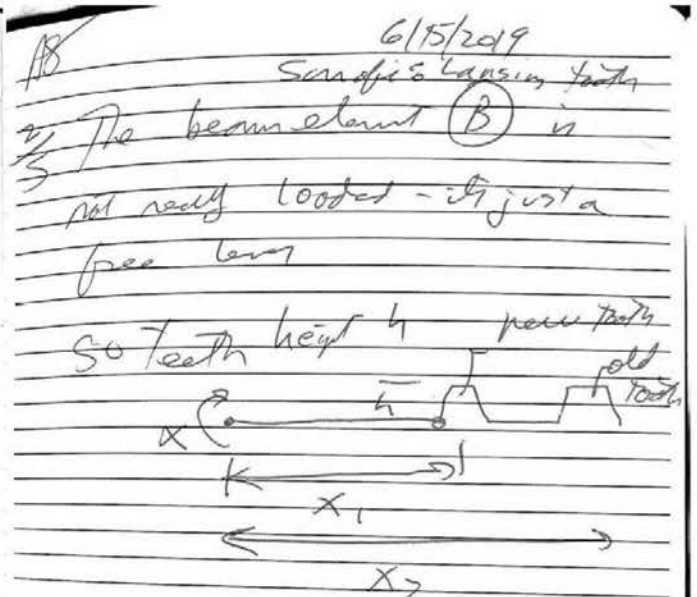 6/15/2019
A8
tooth
2/3 The beam element (B) is
not really loaded - it's just a
free
So teeth height h new tooth
old
tooth
h
α
x1
x2